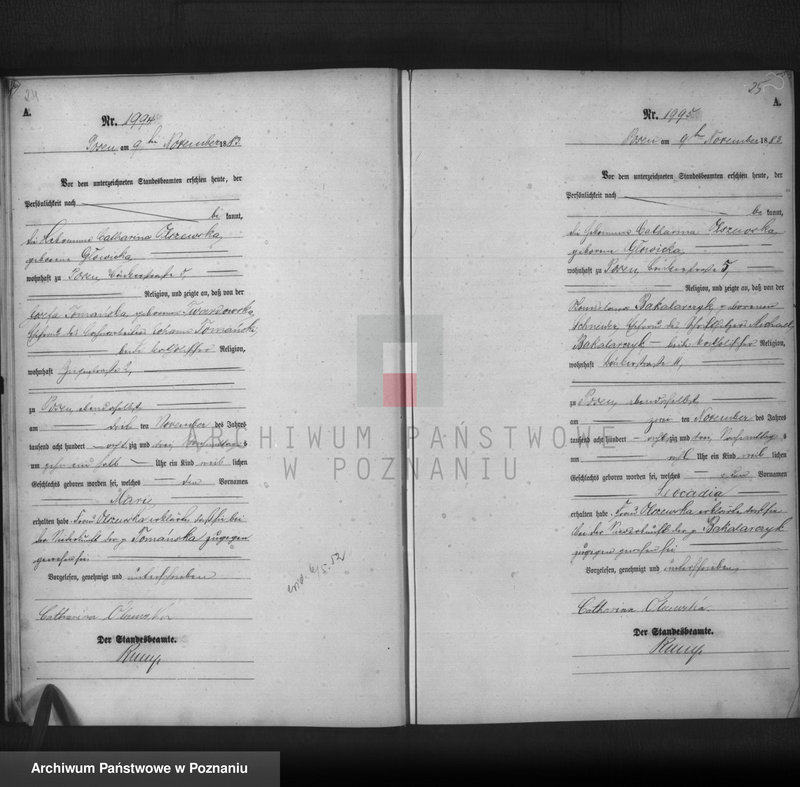 24
A.
Nr. 1994
Posen am 9 ten November 1883.
Vor dem unterzeichneten Standesbeamten erschien heute, der
Persönlichkeit nach
be kannt,
die Hebamme Catharina Olszewska,
geborene Głowicka
wohnhaft zu Posen, 5
Religion, und zeigte an, daß von der
Josefa Tomańska, geborenen Twardowska,
Ehefrau des Johann Tomański
beide katholischer Religion,
wohnhaft 2,
zu Posen, daselbst
am ten November des Jahres
tausend acht hundert acht zig und drei Vormittags
um zehn ein halb Uhr ein Kind weib lichen
Geschlechts geboren worden sei, welches den Vornamen
Marie
erhalten habe. Frau Olszewska erklärte, daß sie bei
der Niederkunft der p. Tomańska zugegen
gewesen sei
Vorgelesen, genehmigt und unterschrieben
Catharina Olszewska
Der Standesbeamte.
Rump.
25
A.
Nr. 1995
Posen am 9ten November 1883.
Vor dem unterzeichneten Standesbeamten erschien heute, der
Persönlichkeit nach
be kannt,
die Hebamme Catharina Olszewska
geborene Głowicka,
wohnhaft zu Posen, 5,
Religion, und zeigte an, daß von der
Bakalarczyk geborenen
Schneider, Ehefrau des Michael
Bakalarczyk beide katholischer Religion,
wohnhaft 11,
zu Posen, daselbst
am zwei ten November des Jahres
tausend acht hundert acht zig und drei Vormittag
um acht Uhr ein Kind weib lichen
Geschlechts geboren worden sei, welches den Vornamen
Leocadia
erhalten habe. Frau Olszewska erklärte, daß sie
bei der Niederkunft der p. Bakalarczyk
zugegen gewesen sei
Vorgelesen, genehmigt und unterschrieben
Catharina Olszewska.
Der Standesbeamte.
Rump.
ARCHIWUM PAŃSTWOWE
W POZNANIU
Archiwum Państwowe w Poznaniu